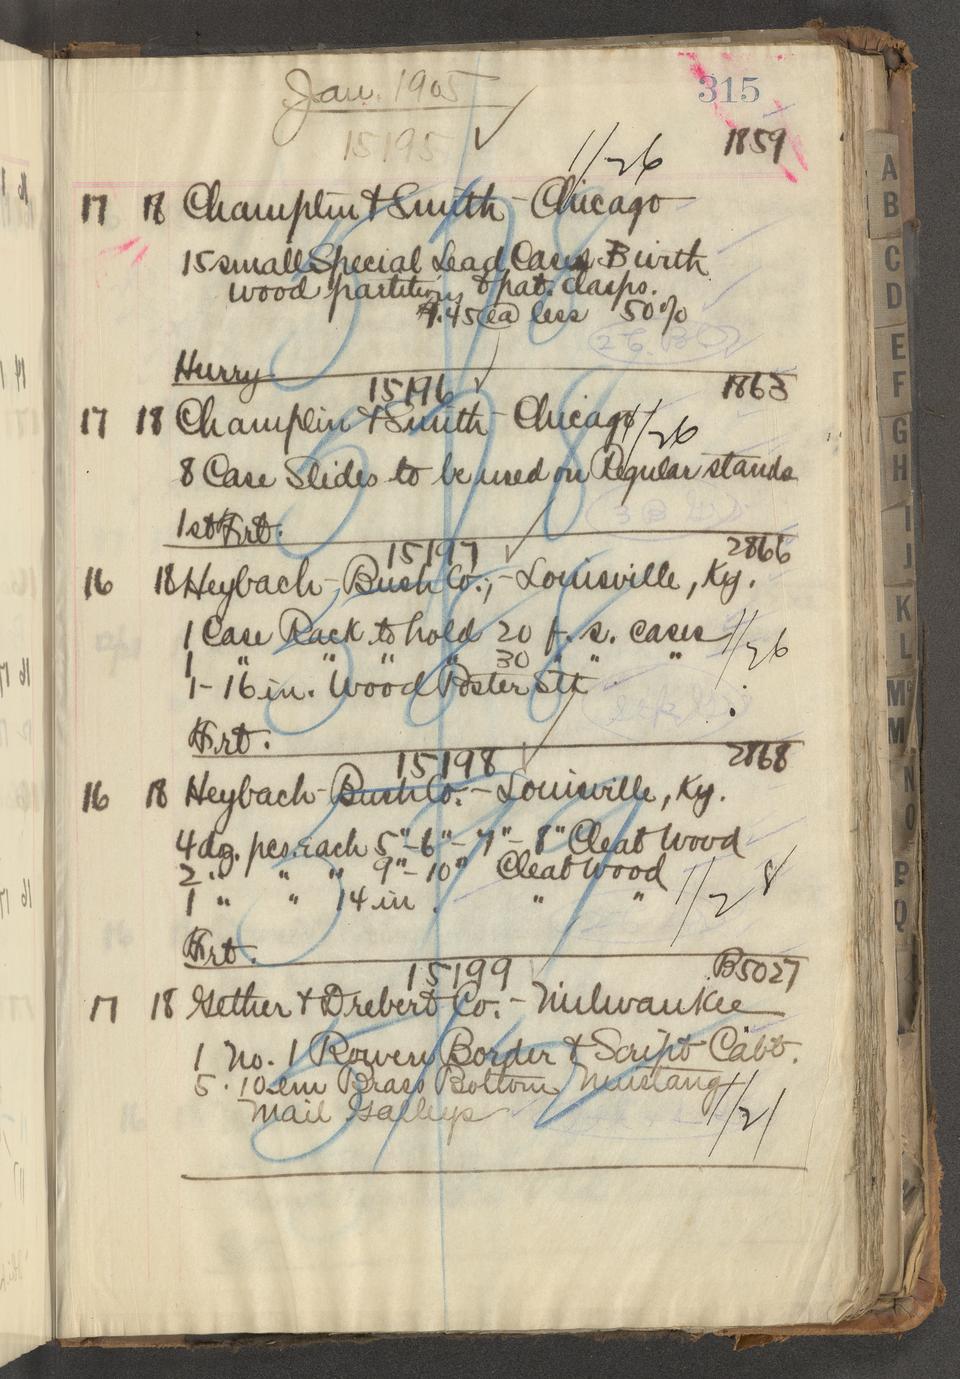 315
Jan. 1905
15195
1859
1/26
17 18 Champlin & Smith - Chicago
15 small Special Lead Cases B with
wood partitions & pat. clasps.
1.45 @ less 50%
Hurry
15196 1863
17 18 Champlin & Smith - Chicago 1/26
8 Case Slides to be used on Regular stands
1st Frt.
15197 2866
16 18 Heybach-Bush Co., - Louisville, Ky.
1 Case Rack to hold 20 f. s. cases 1/26
1 " " " " 30 " " "
1- 16 in. Wood Poster Stk
Frt.
15198 2868
16 18 Heybach-Bush Co. - Louisville, Ky.
4 dz. pcs. each 5"-6"-7"-8" Cleat Wood
2 " " " 9"-10" Cleat Wood
1 " " 14 in. " " 1/28
Frt.
15199 B5027
17 18 Gether & Drebert Co. - Milwaukee
1 No. 1 Rowen Border & Script Cabt.
5 - 10 em Brass Bottom Mustang
Mail Galleys 1/21
A
B
C
D
E
F
G
H
I
J
K
L
M
M
N
O
P
Q